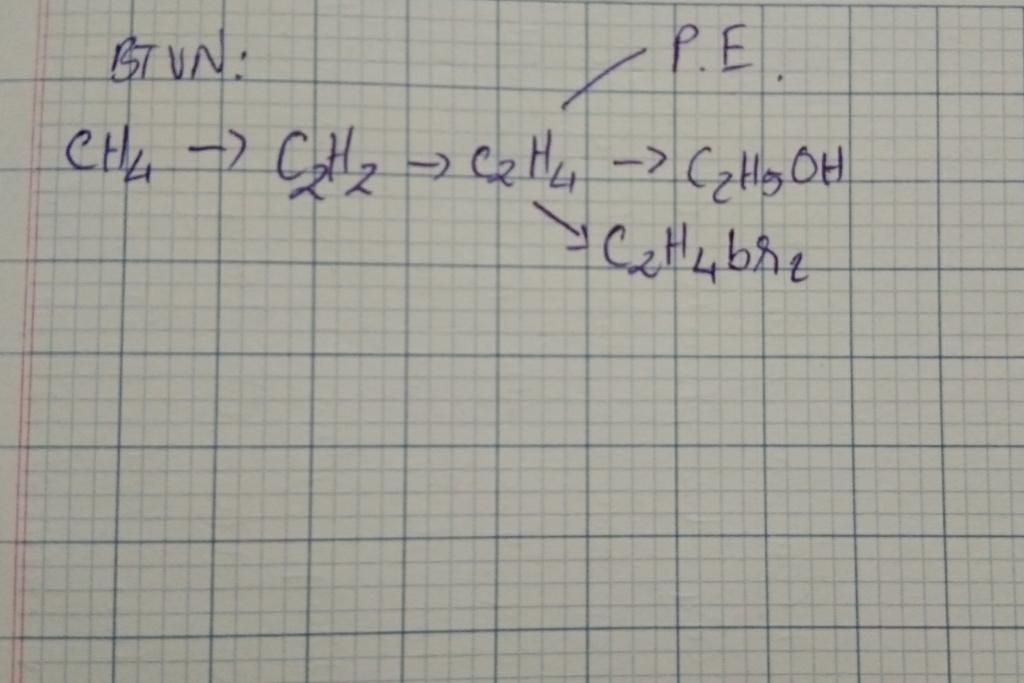 BTVN:
P.E.
CH4 → C2H2 → C2H4 → C2H5OH
C2H4br2